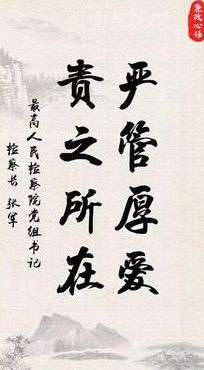 廉政心语
严管厚爱
责之所在
最高人民检察院党组书记
检察长 张军